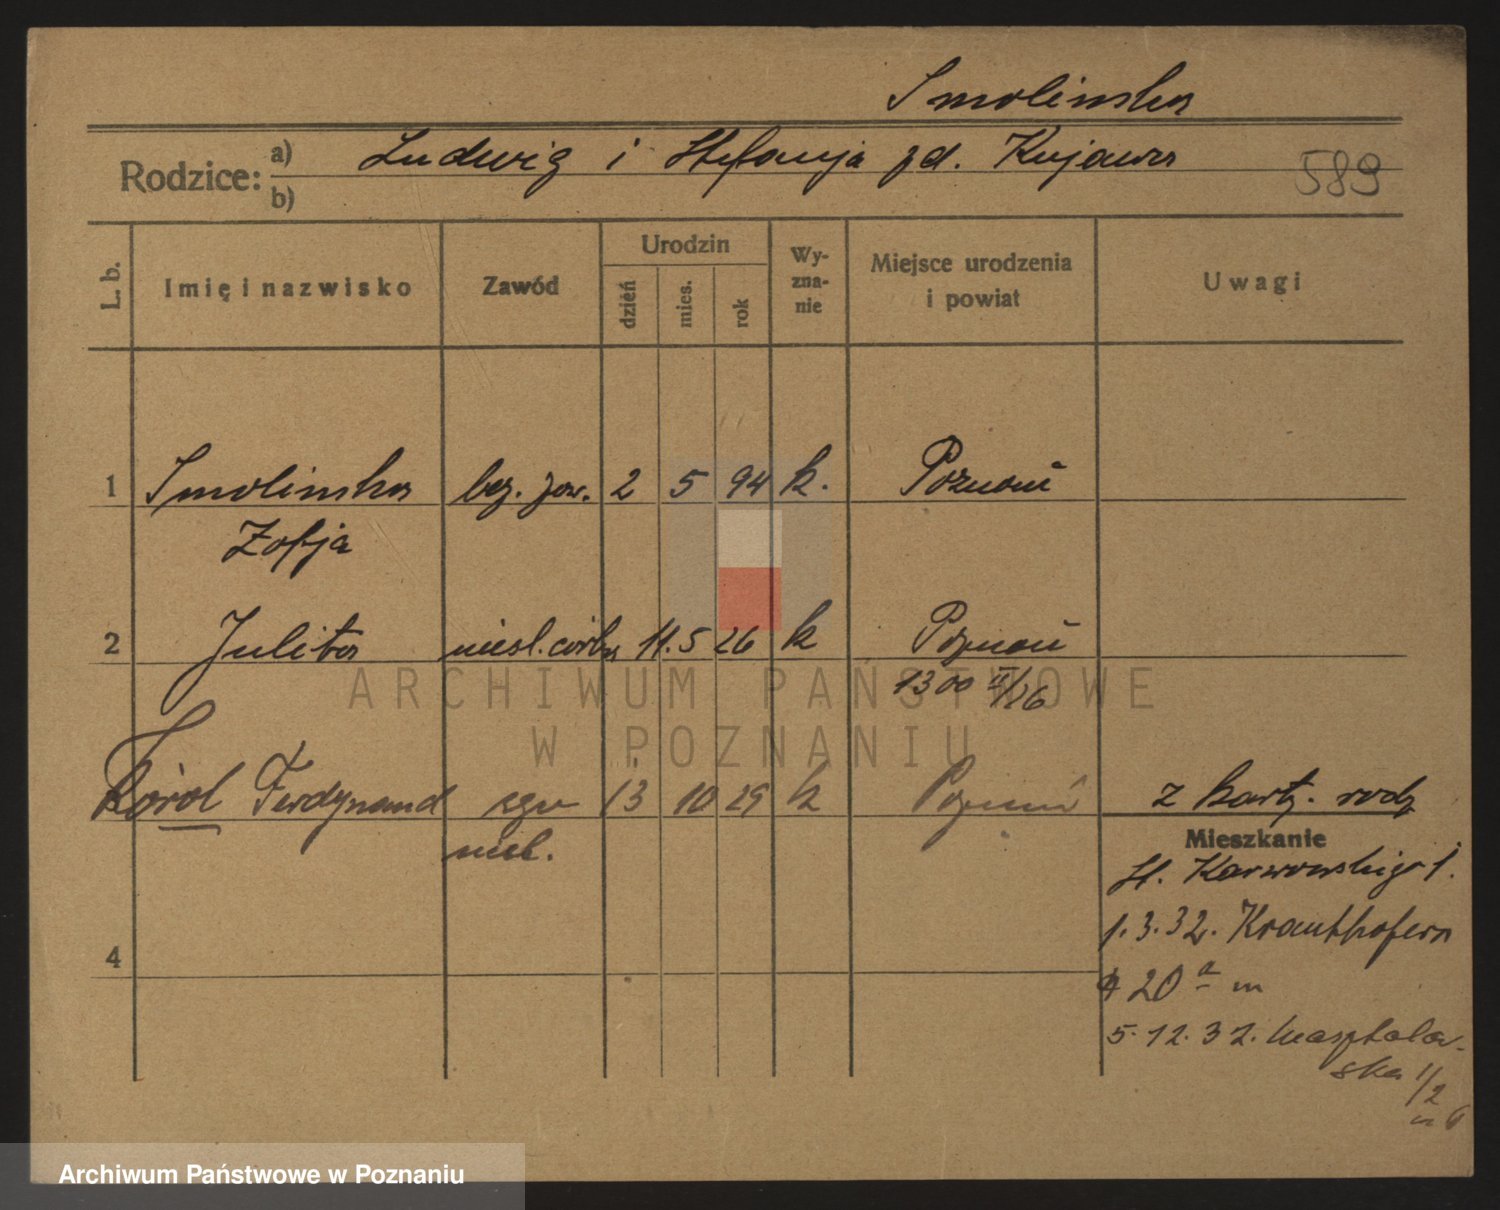 Smolinska
Rodzice: a) Ludwig i Stefanja zd. Kujawa
b)
589
L. b.
Imię i nazwisko
Zawód
Urodzin
dzień
mies.
rok
Wy-
zna-
nie
Miejsce urodzenia
i powiat
Uwagi
1 Smolinska bez. zaw. 2 5 94 k. Poznań
Zofja
2 Julita niesl. córka 11. 5 26 k Poznań
1300 II/26
Karol Ferdynand syn 13 10 29 k Poznań z Kartz. rodz
niesl.
Mieszkanie
St. Karwowskiego 1.
1.3.32. Krauthofera
20 a m
4
5.12.32. Masztalar-
ska 1/2
m 6
ARCHIWUM PAŃSTWOWE
W POZNANIU
Archiwum Państwowe w Poznaniu